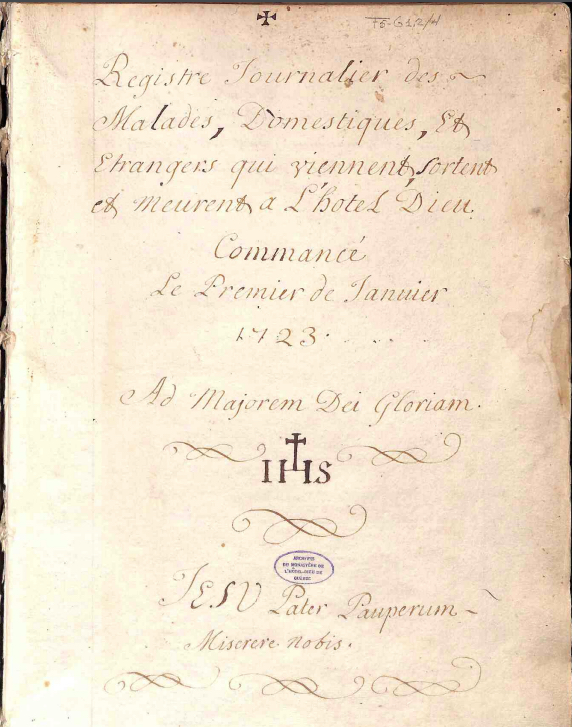 F5-G1,2/4
Registre Journalier des
Malades, Domestiques, Et
Etrangers qui viennent, sortent
et meurent a L'hotel Dieu.
Commancé
Le Premier de Januier
1723.
Ad Majorem Dei Gloriam.
IHS
ARCHIVES
DU MONASTÈRE DE
L'HÔTEL-DIEU DE
QUÉBEC
JESU Pater Pauperum
Miserere nobis.